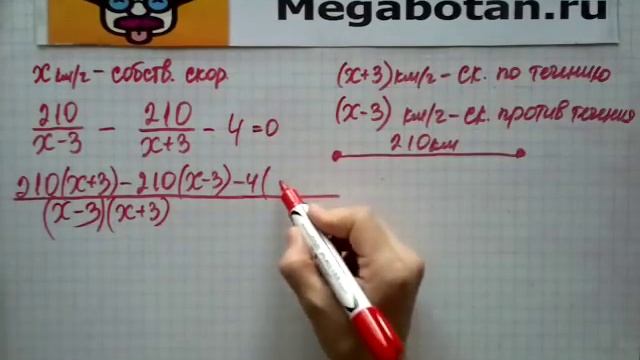 Megabotan.ru
x км/ч - собств. скор.
(x+3) км/ч - ск. по течению
(x-3) км/ч - ск. против течения
210 км
210/(x-3) - 210/(x+3) - 4 = 0
210(x+3) - 210(x-3) - 4(
(x-3)(x+3)